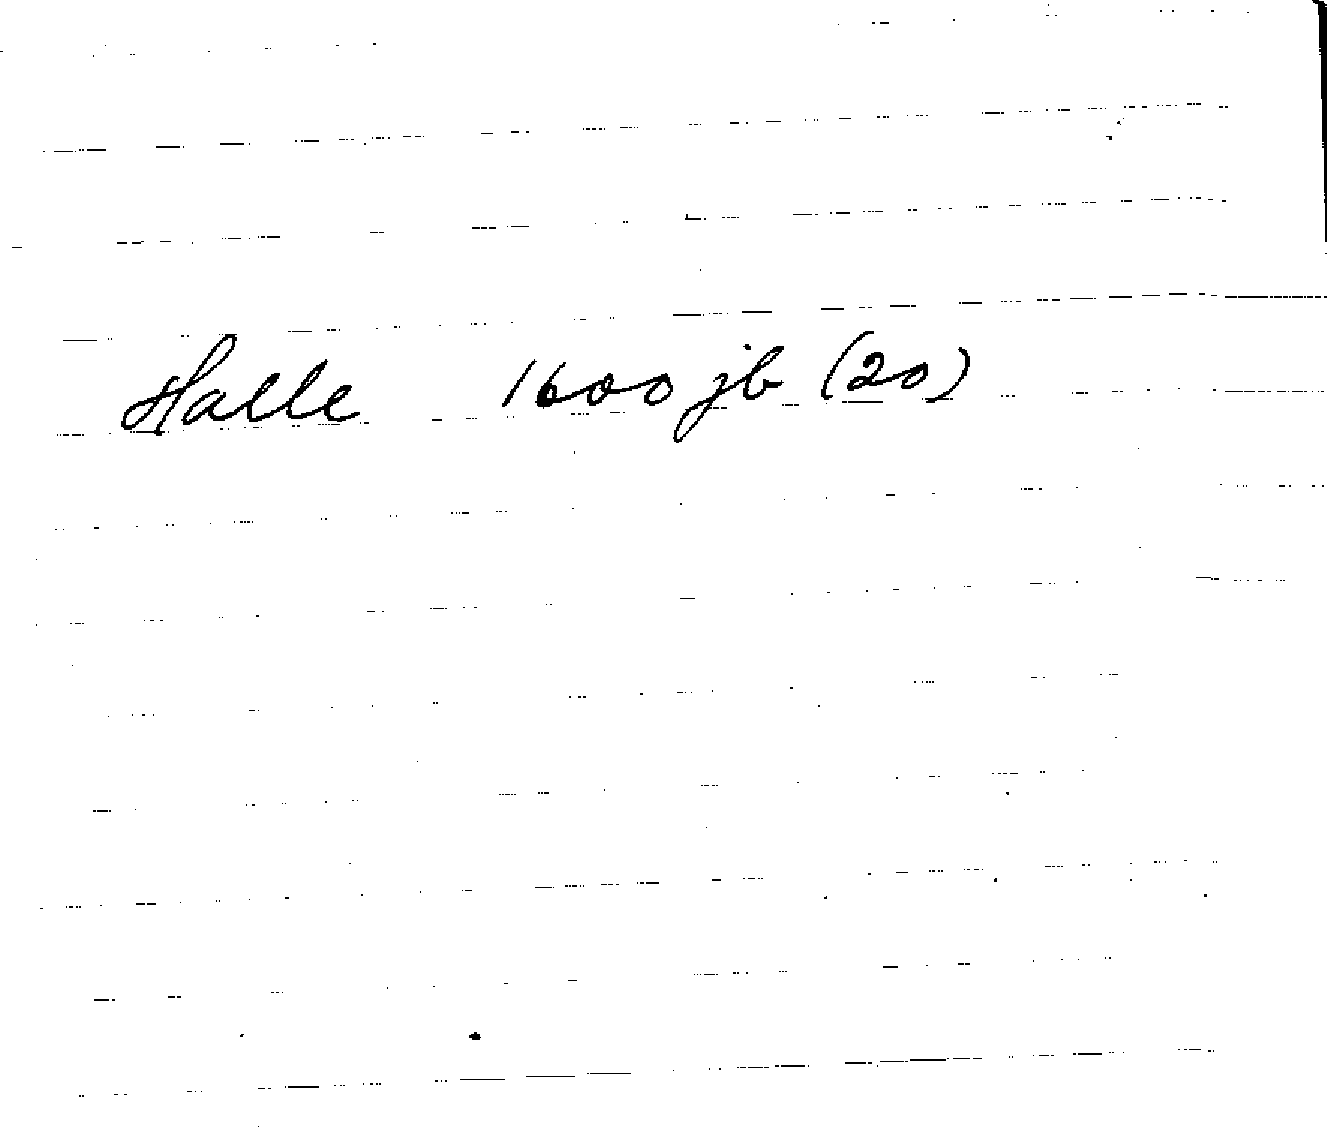 Halle 1600 jb (20)